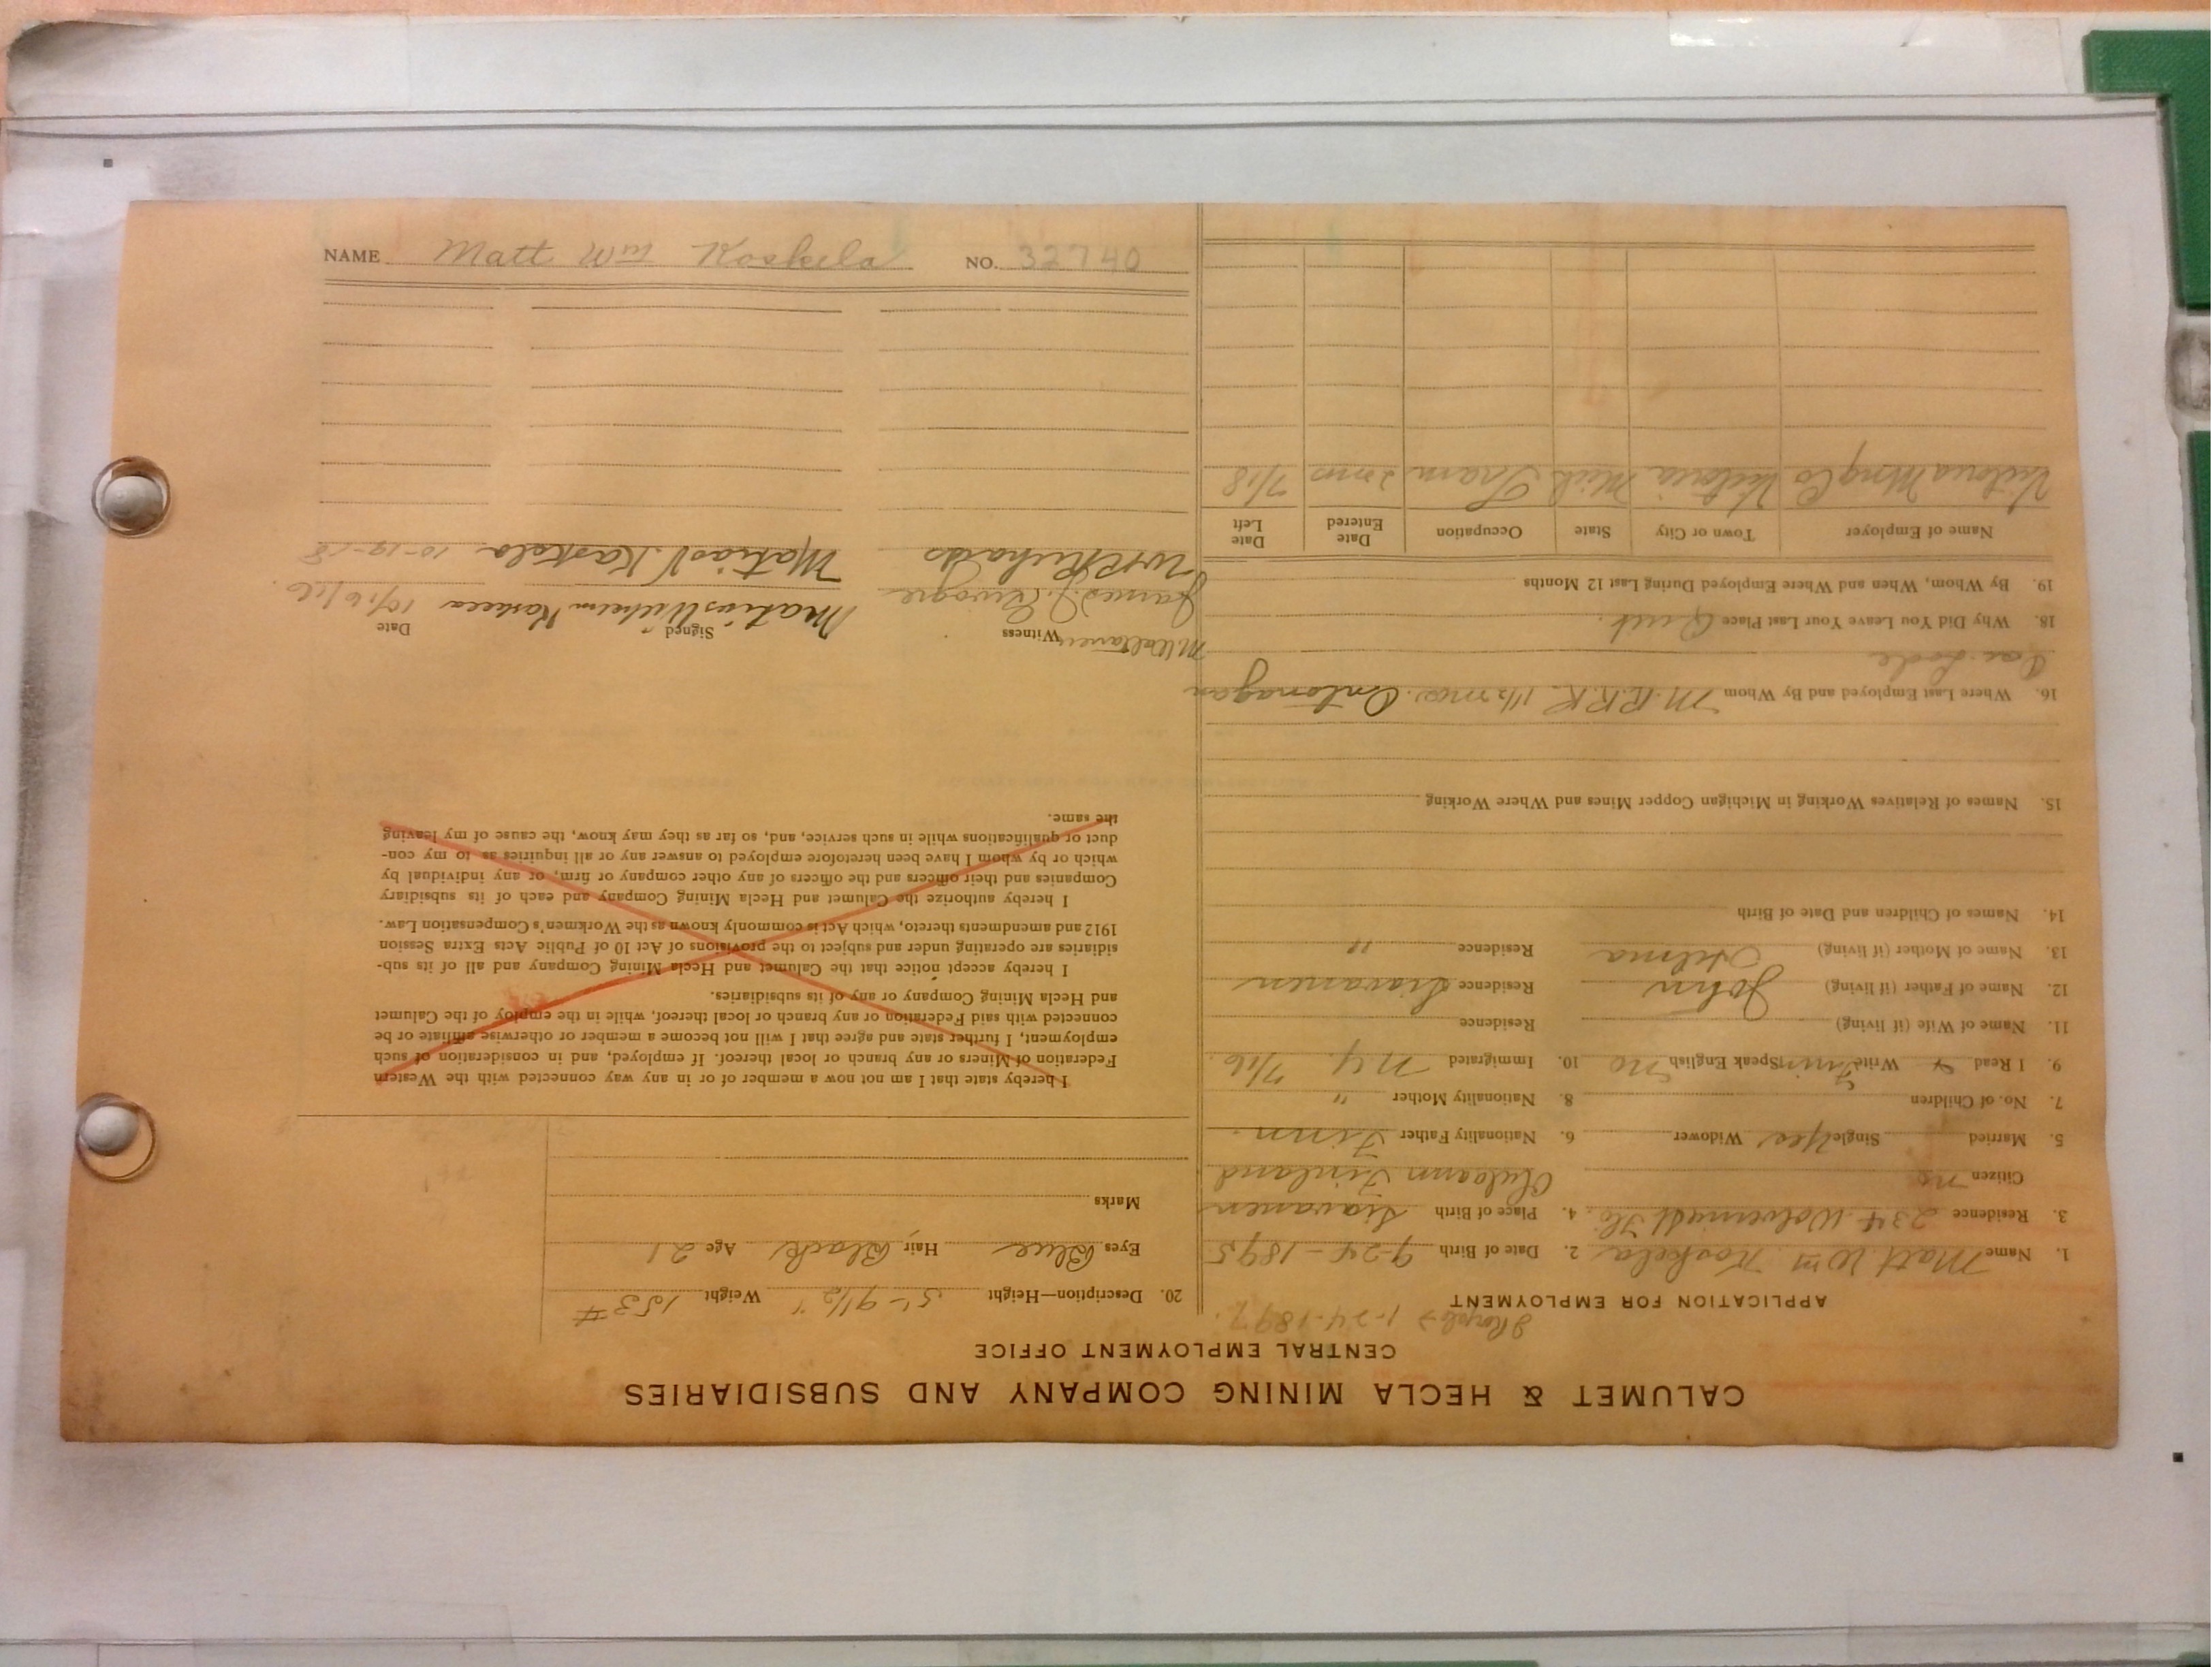 NAME Matt Wm Koskela NO. 32740
CALUMET & HECLA MINING COMPANY AND SUBSIDIARIES
CENTRAL EMPLOYMENT OFFICE
1-24-1897
APPLICATION FOR EMPLOYMENT
1. Name Matt Wm Koskela 2. Date of Birth 9-24-1895
3. Residence 234 4. Place of Birth
Citizen no Finland
5. Married Single Yes Widower 6. Nationality Father Finn
7. No. of Children 8. Nationality Mother "
9. I Read & Write Finn Speak English No 10. Immigrated N.Y. 7/16
11. Name of Wife (if living) Residence
12. Name of Father (if living) John Residence
13. Name of Mother (if living) Residence "
14. Names of Children and Date of Birth
15. Names of Relatives Working in Michigan Copper Mines and Where Working
16. Where Last Employed and By Whom M.R.R.R. 1 1/2 mos. Ontonagon
18. Why Did You Leave Your Last Place Quit.
19. By Whom, When and Where Employed During Last 12 Months
Name of Employer Town or City State Occupation Date Entered Date Left
Victoria Mng Co Victoria Mich Tram 2 mos 7/18
20. Description—Height 5'-9 1/2" Weight 153#
Eyes Blue Hair Black Age 21
Marks
I hereby state that I am not now a member of or in any way connected with the Western
Federation of Miners or any branch or local thereof. If employed, and in consideration of such
employment, I further state and agree that I will not become a member or otherwise affiliate or be
connected with said Federation or any branch or local thereof, while in the employ of the Calumet
and Hecla Mining Company or any of its subsidiaries.
I hereby accept notice that the Calumet and Hecla Mining Company and all of its sub-
sidiaries are operating under and subject to the provisions of Act 10 of Public Acts Extra Session
1912 and amendments thereto, which Act is commonly known as the Workmen's Compensation Law.
I hereby authorize the Calumet and Hecla Mining Company and each of its subsidiary
Companies and their officers and the officers of any other company or firm, or any individual by
which or by whom I have been heretofore employed to answer any or all inquiries as to my con-
duct or qualifications while in such service, and, so far as they may know, the cause of my leaving
the same.
Witness Signed Date
James Matias Wilhelm Koskela 10/16/16
W R Richards Matias V. Koskela 10-19-18